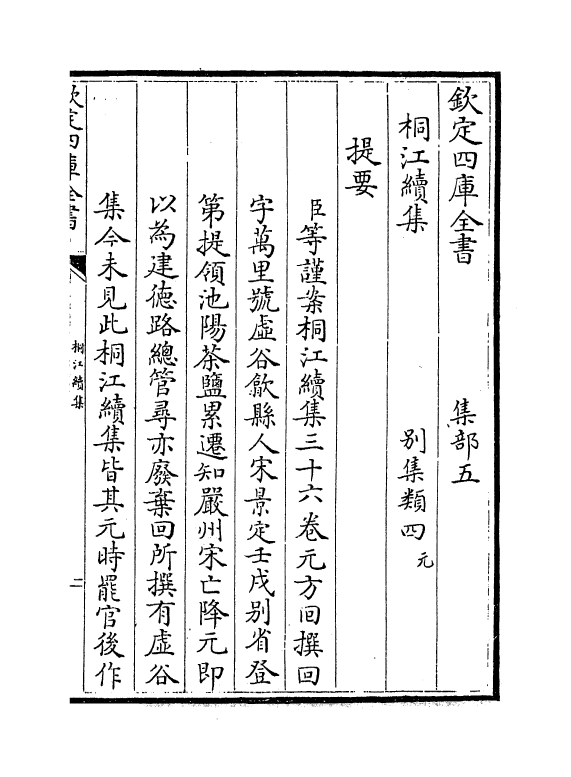 欽定四庫全書 集部五
桐江續集 别集類四 元
提要
臣等謹案桐江續集三十六卷元方回撰回
字萬里號虛谷歙縣人宋景定壬戌别省登
第提領池陽茶鹽累遷知嚴州宋亡降元即
以為建德路總管尋亦廢棄回所撰有虛谷
集今未見此桐江續集皆其元時罷官後作
欽定四庫全書
桐江續集
二